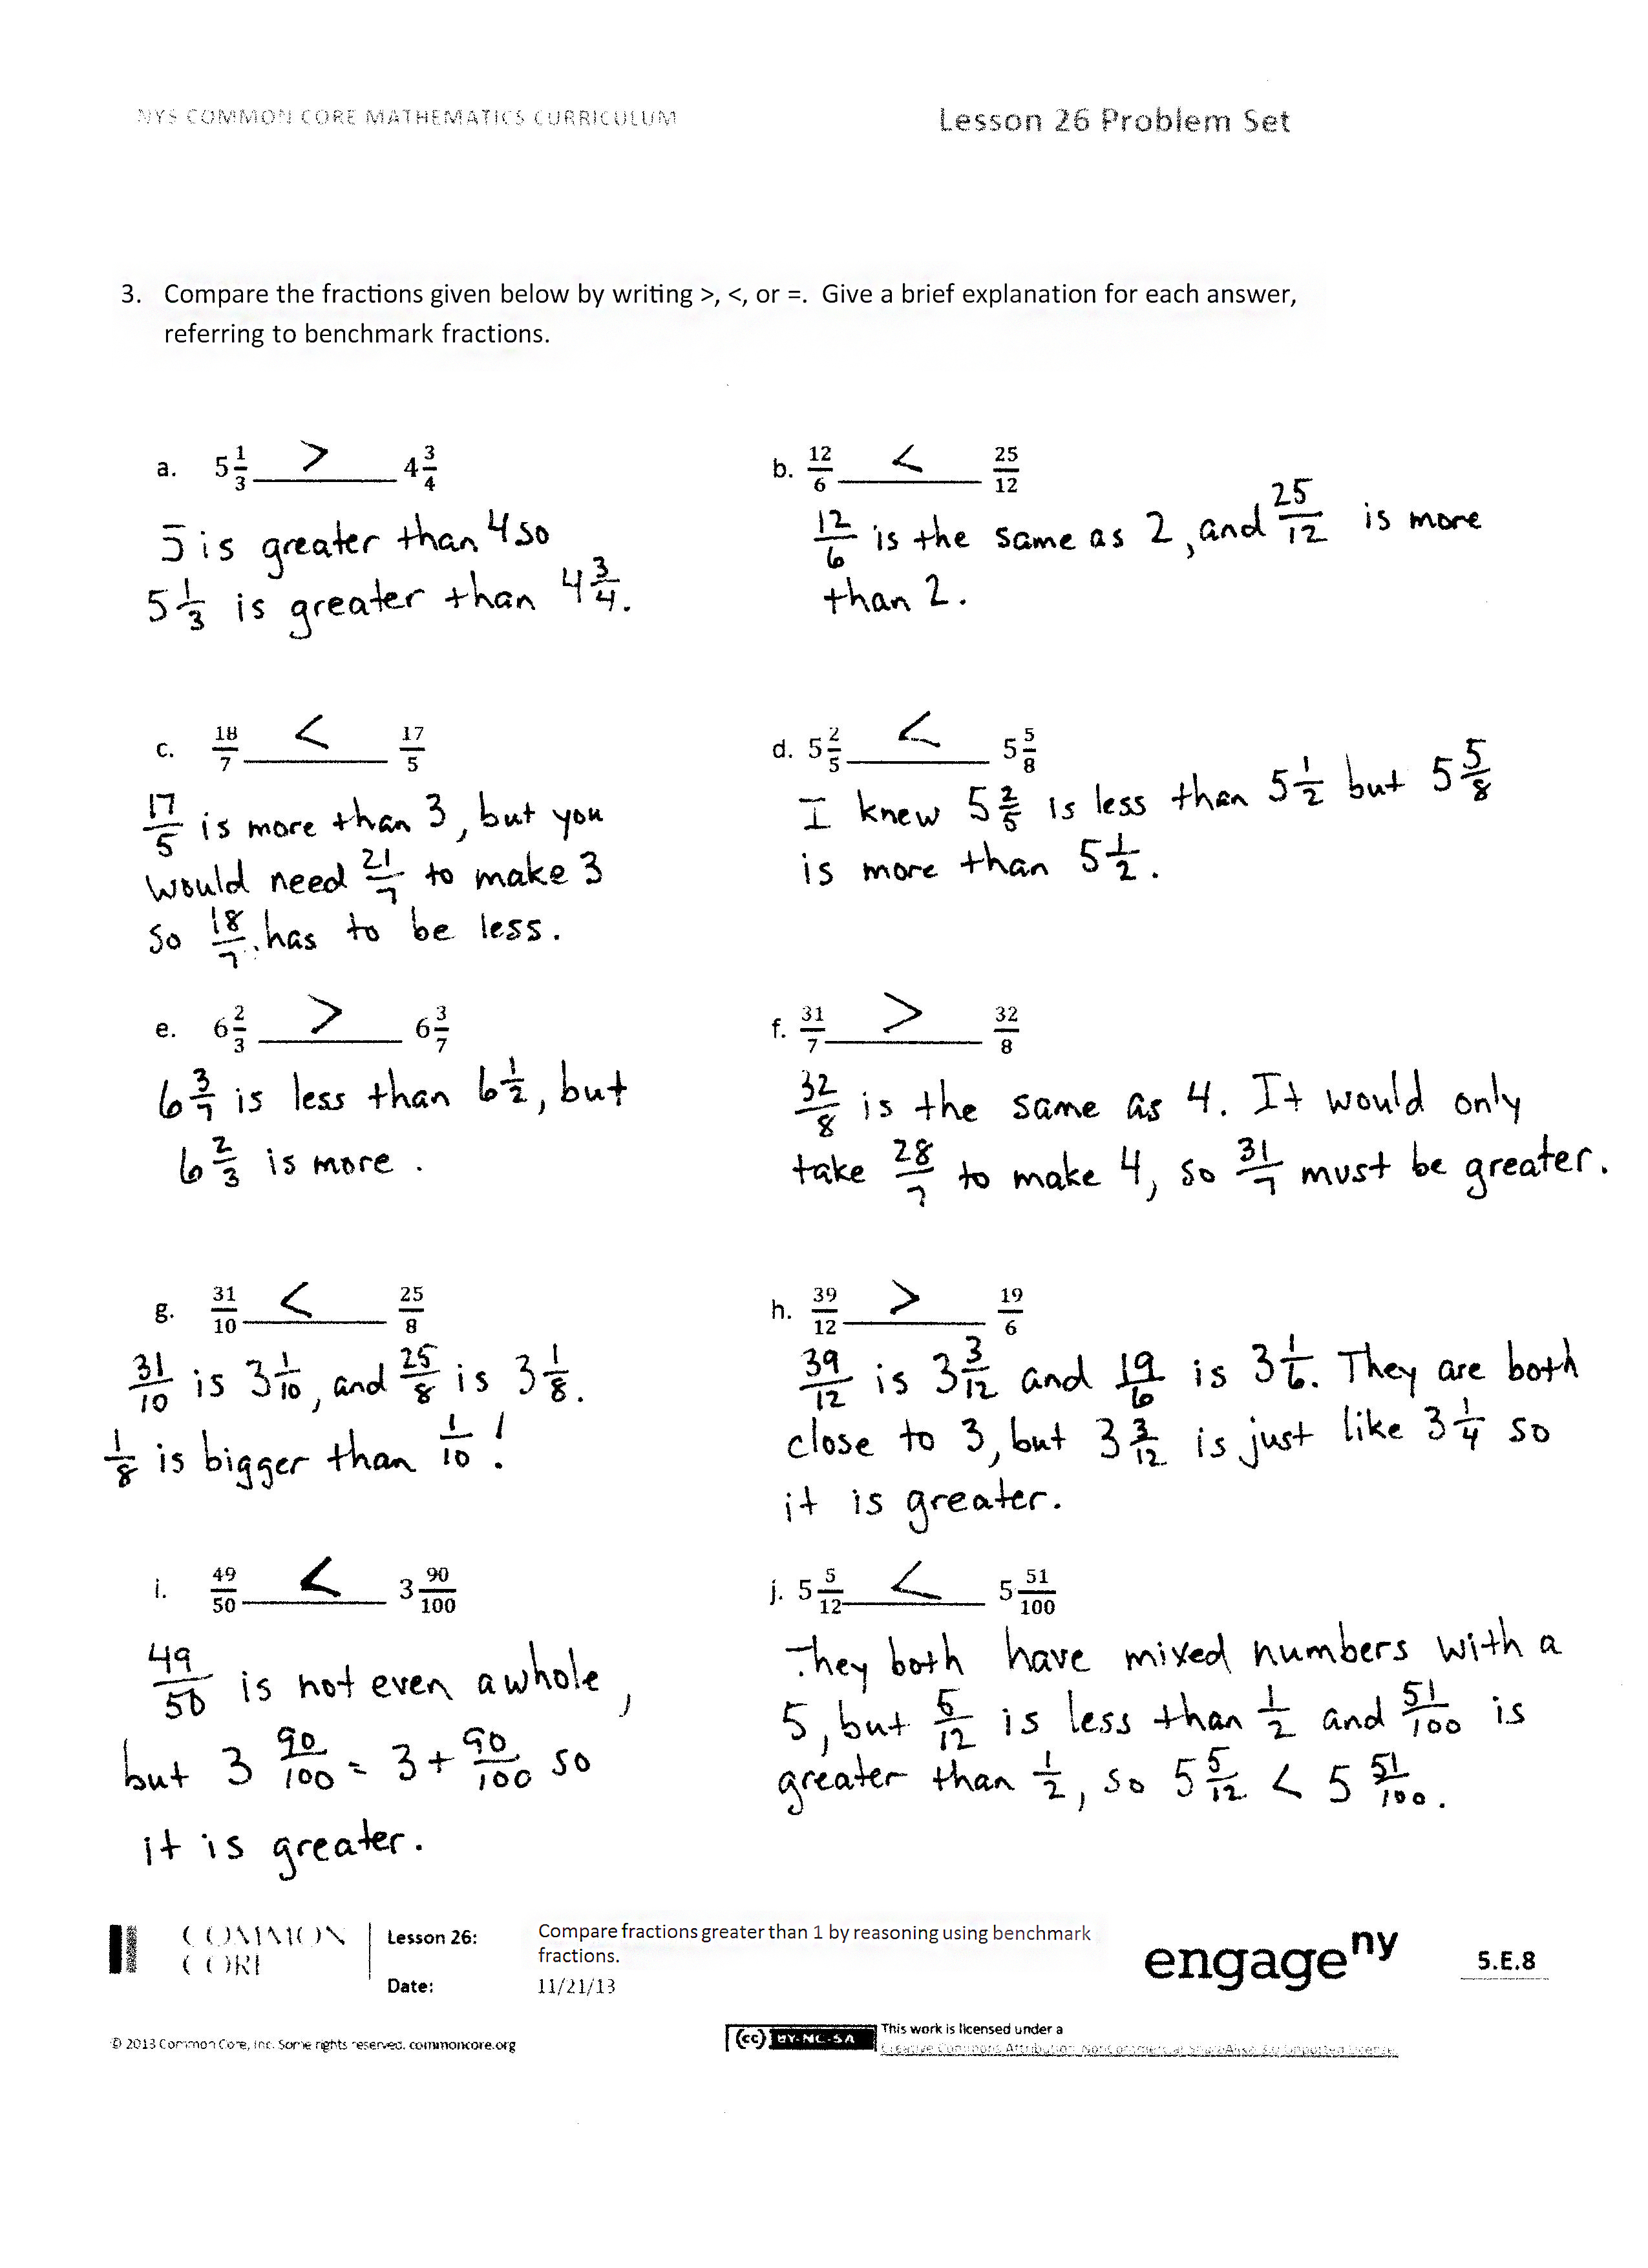 NYS COMMON CORE MATHEMATICS CURRICULUM
Lesson 26 Problem Set
3. Compare the fractions given below by writing >, <, or =. Give a brief explanation for each answer,
referring to benchmark fractions.
a. 5 1/3 > 4 3/4
5 is greater than 4 so
5 1/3 is greater than 4 3/4.
b. 12/6 < 25/12
12/6 is the same as 2, and 25/12 is more
than 2.
c. 18/7 < 17/5
17/5 is more than 3, but you
would need 21/7 to make 3
so 18/7 has to be less.
d. 5 2/5 < 5 5/8
I knew 5 2/5 is less than 5 1/2 but 5 5/8
is more than 5 1/2.
e. 6 2/3 > 6 3/7
6 3/7 is less than 6 1/2, but
6 2/3 is more.
f. 31/7 > 32/8
32/8 is the same as 4. It would only
take 28/7 to make 4, so 31/7 must be greater.
g. 31/10 < 25/8
31/10 is 3 1/10, and 25/8 is 3 1/8.
1/8 is bigger than 1/10!
h. 39/12 > 19/6
39/12 is 3 3/12 and 19/6 is 3 1/6. They are both
close to 3, but 3 3/12 is just like 3 1/4 so
it is greater.
i. 49/50 < 3 90/100
49/50 is not even a whole,
but 3 90/100 = 3 + 90/100 so
it is greater.
j. 5 5/12 < 5 51/100
They both have mixed numbers with a
5, but 5/12 is less than 1/2 and 51/100 is
greater than 1/2, so 5 5/12 < 5 51/100.
COMMON
CORE
Lesson 26:
Date:
Compare fractions greater than 1 by reasoning using benchmark
fractions.
11/21/13
engageny
5.E.8
© 2013 Common Core, Inc. Some rights reserved. commoncore.org
(cc) BY-NC-SA
This work is licensed under a
Creative Commons Attribution-NonCommercial-ShareAlike 3.0 Unported License.